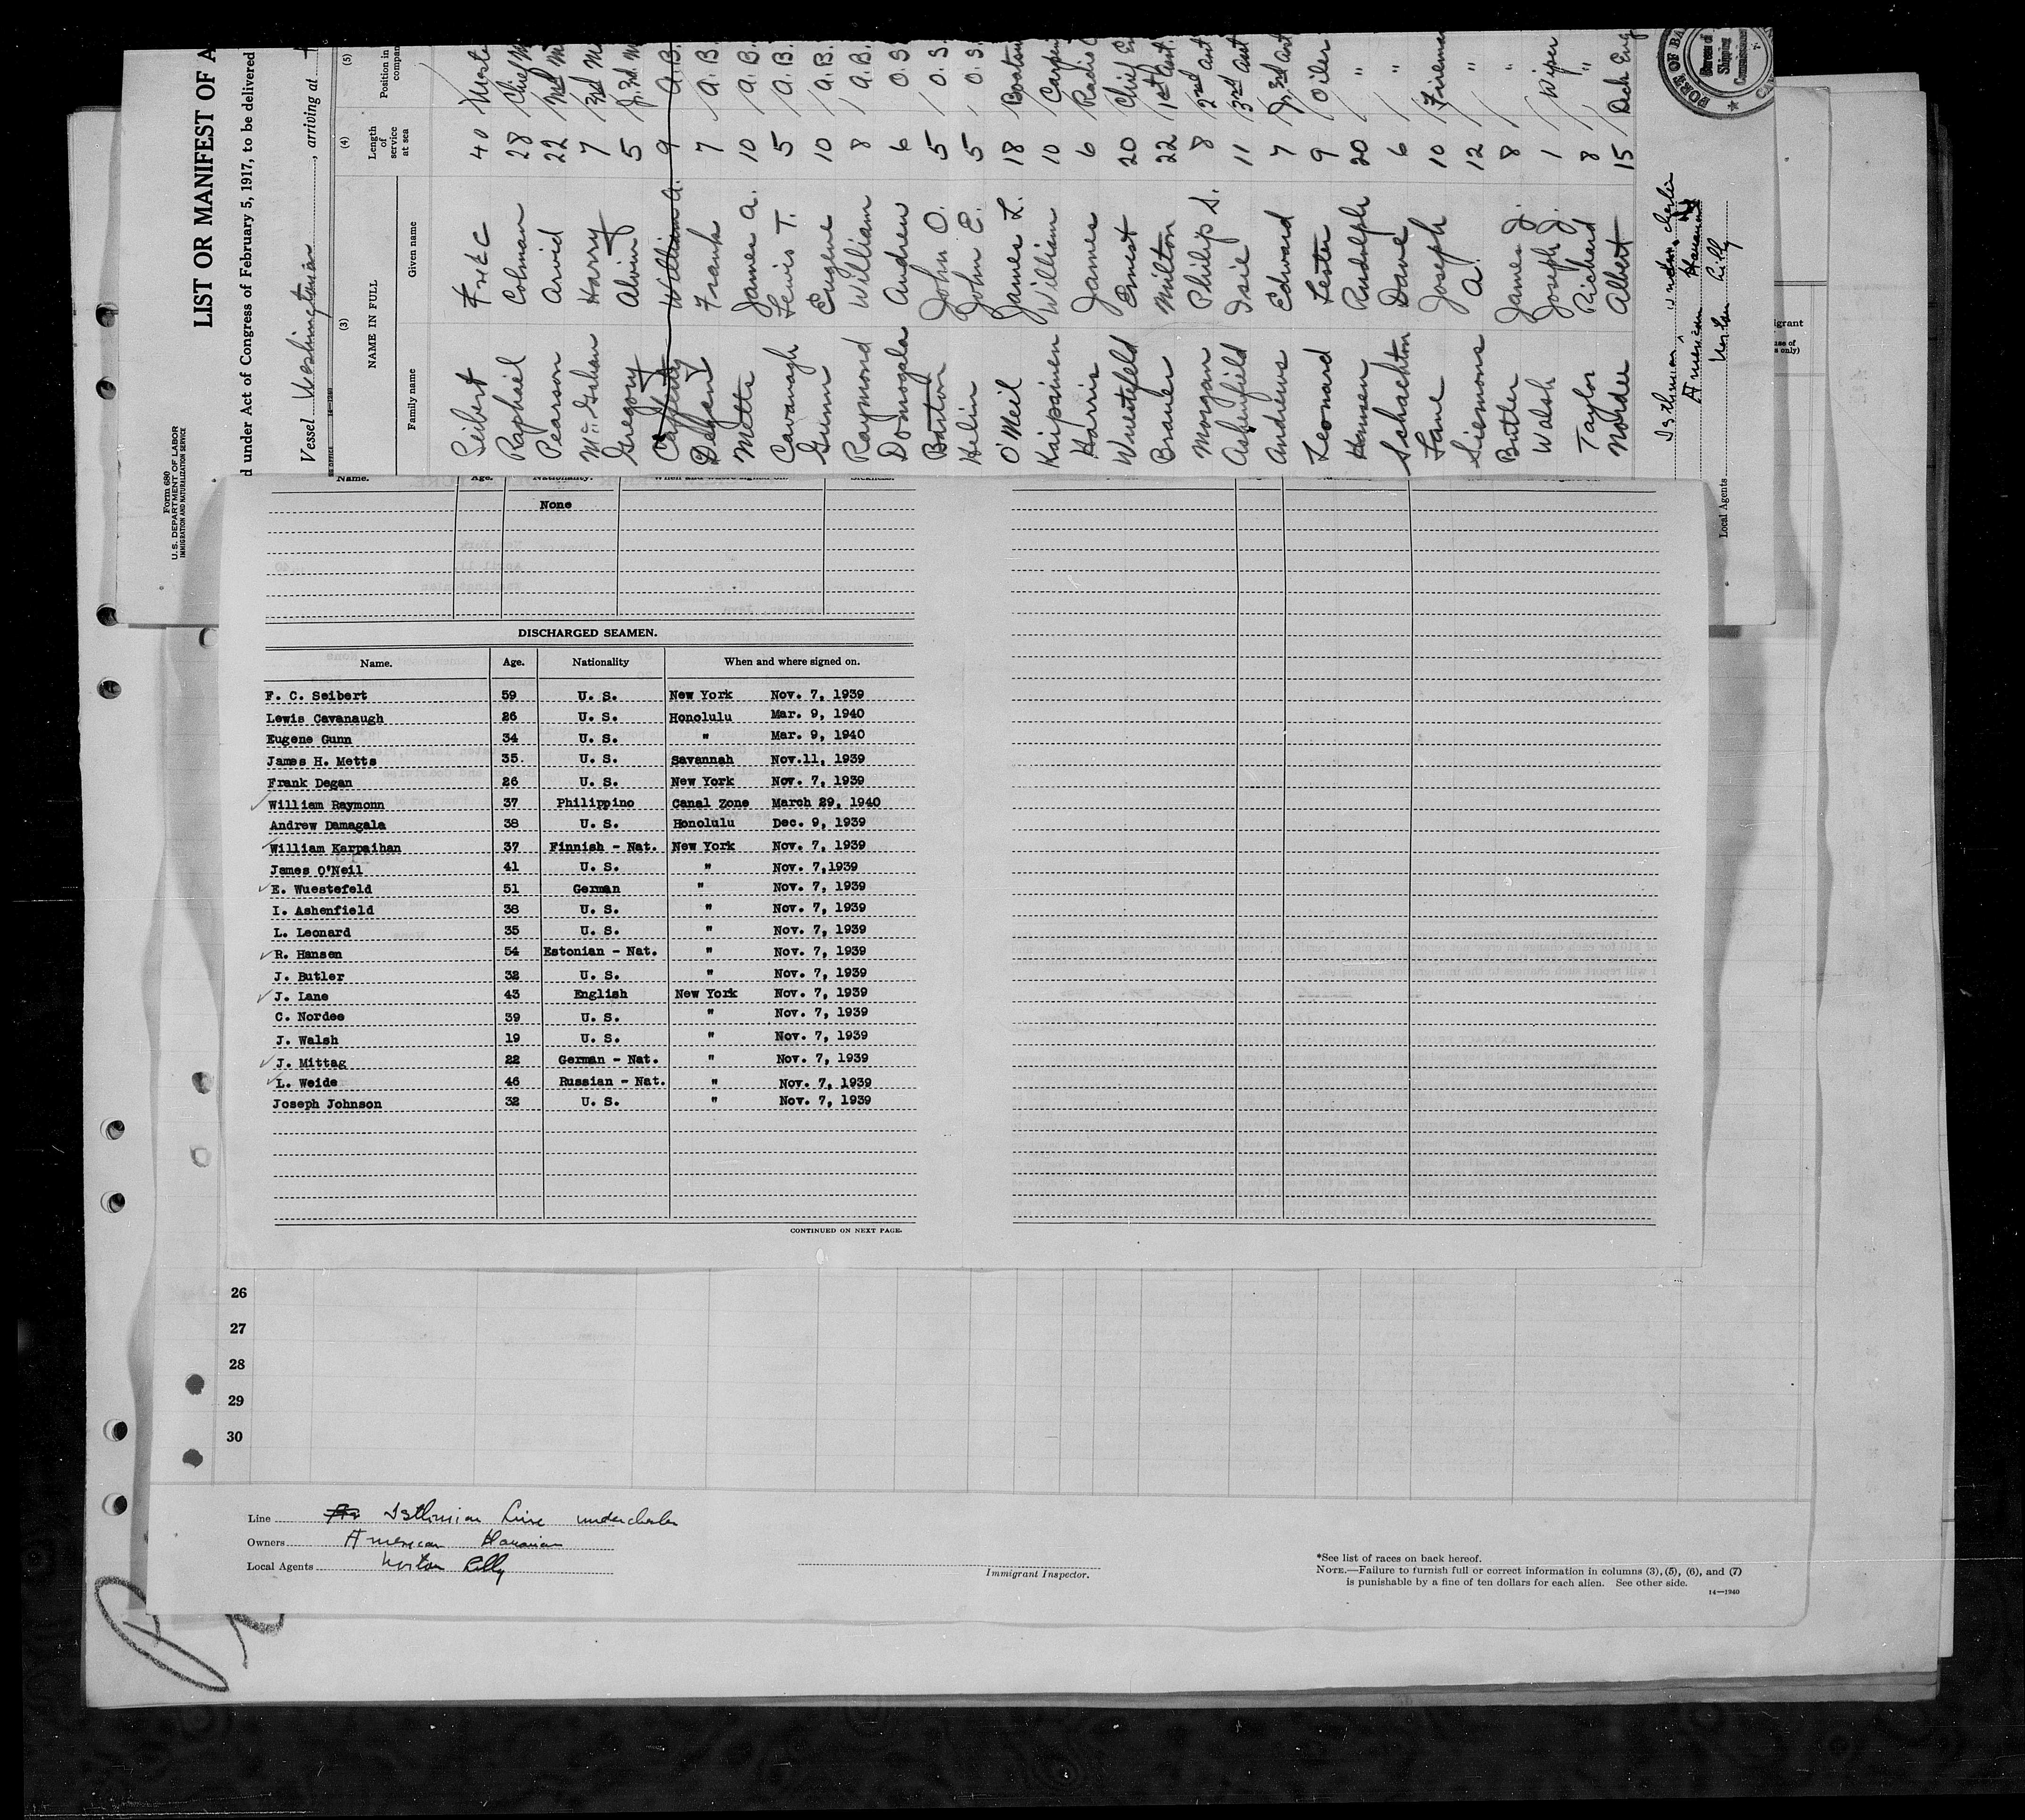 Form 680
U.S. DEPARTMENT OF LABOR
IMMIGRATION AND NATURALIZATION SERVICE
LIST OR MANIFEST OF A
d under Act of Congress of February 5, 1917, to be delivered
Vessel Washingtonian, arriving at
(3) (4) (5)
NAME IN FULL Length of service at sea Position in compan
Family name Given name
Seibert 40
Raphael Colman 28 Chief M
Pearson Arvid 22 2nd M
Harry 7 3rd M
Gregory Alvin 5 Jr. 3rd M
William A. 9 A.B.
Degan Frank 7 A.B.
Metts James A. 10 A.B.
Cavanagh Lewis T. 5 A.B.
Gunn Eugene 10 A.B.
Raymond William 8 A.B.
Domogala Andrew 6 O.S
Barton John O. 5 O.S.
Helin John E. 5 O.S.
O'Neil James L. 18 Boatsw
Kaipainen William 10 Carpen
Harris James 6 Radio O
Wuestefeld Ernest 20 Chief En
Brauer Milton 22 1st Asst.
Morgan Philip S. 8 2nd Asst
Ashenfield Isie 11 3rd Asst
Andrews Edward 7 Jr 3rd Asst
Leonard Lester 9 Oiler
Hansen Rudolph 20 "
Schachton Dave 6 "
Lane Joseph 10 Fireman
Siemons A. 12 "
Butler James J. 8 "
Walsh Joseph J. 1 Wiper
Taylor Richard 8 "
Nordee Albert 15 Deck Eng
Isthmian
American Hawaiian
Local Agents Norton Lilly
PORT OF BA
Bureau of Shipping Commissioner
Name. Age. Nationality. When and where signed on. Sickness.
None
DISCHARGED SEAMEN.
Name. Age. Nationality When and where signed on.
F. C. Seibert 59 U. S. New York Nov. 7, 1939
Lewis Cavanaugh 26 U. S. Honolulu Mar. 9, 1940
Eugene Gunn 34 U. S. " Mar. 9, 1940
James H. Metts 35. U. S. Savannah Nov.11, 1939
Frank Degan 26 U. S. New York Nov. 7, 1939
William Raymonn 37 Philippino Canal Zone March 29, 1940
Andrew Damagala 38 U. S. Honolulu Dec. 9, 1939
William Karpaihan 37 Finnish - Nat. New York Nov. 7, 1939
James O'Neil 41 U. S. " Nov. 7,1939
E. Wuestefeld 51 German " Nov. 7, 1939
I. Ashenfield 38 U. S. " Nov. 7, 1939
L. Leonard 35 U. S. " Nov. 7, 1939
R. Hansen 54 Estonian - Nat. " Nov. 7, 1939
J. Butler 32 U. S. " Nov. 7, 1939
J. Lane 43 English New York Nov. 7, 1939
C. Nordee 39 U. S. " Nov. 7, 1939
J. Walsh 19 U. S. " Nov. 7, 1939
J. Mittag 22 German - Nat. " Nov. 7, 1939
L. Weide 46 Russian - Nat. " Nov. 7, 1939
Joseph Johnson 32 U. S. " Nov. 7, 1939
CONTINUED ON NEXT PAGE.
26
27
28
29
30
Line Isthmian Line
Owners American Hawaiian
Local Agents Norton Lilly
Immigrant Inspector.
*See list of races on back hereof.
NOTE.—Failure to furnish full or correct information in columns (3), (5), (6), and (7)
is punishable by a fine of ten dollars for each alien. See other side.
14—1940